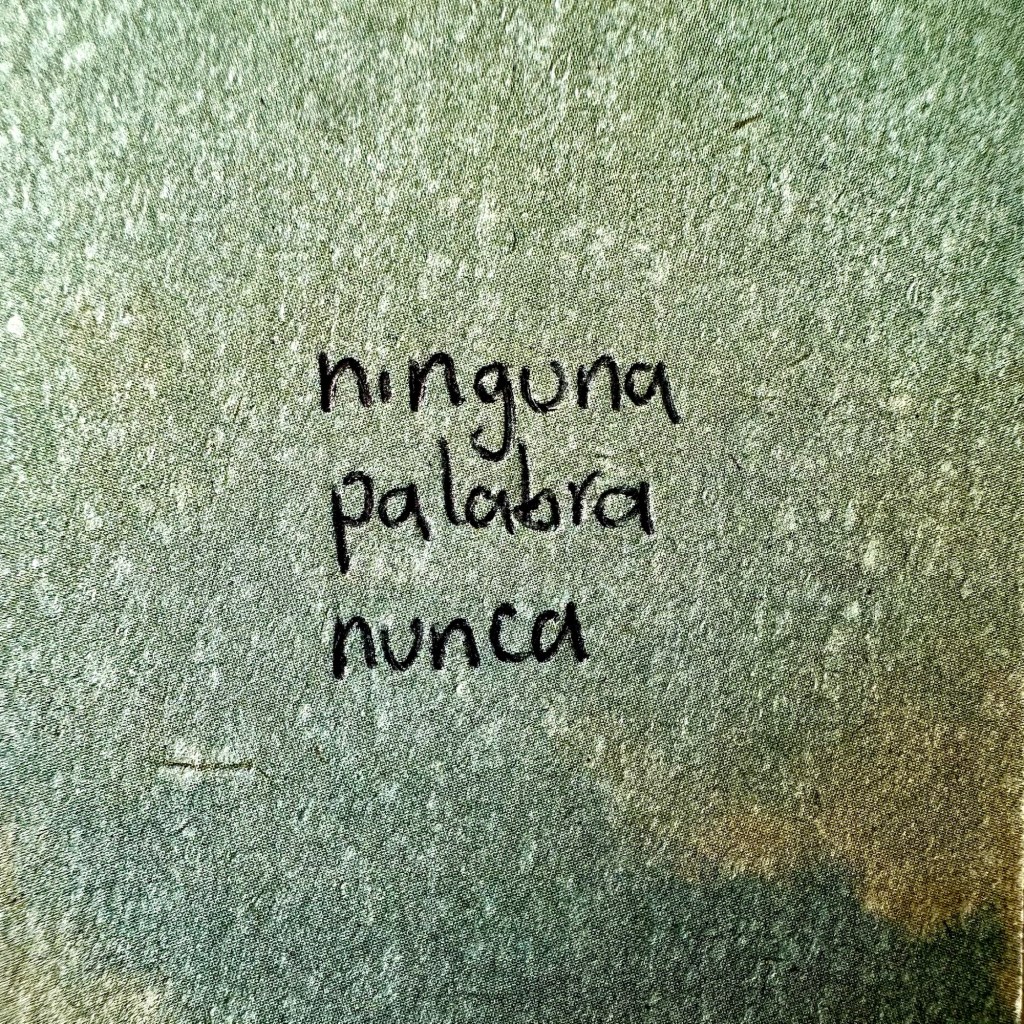 ninguna
palabra
nunca